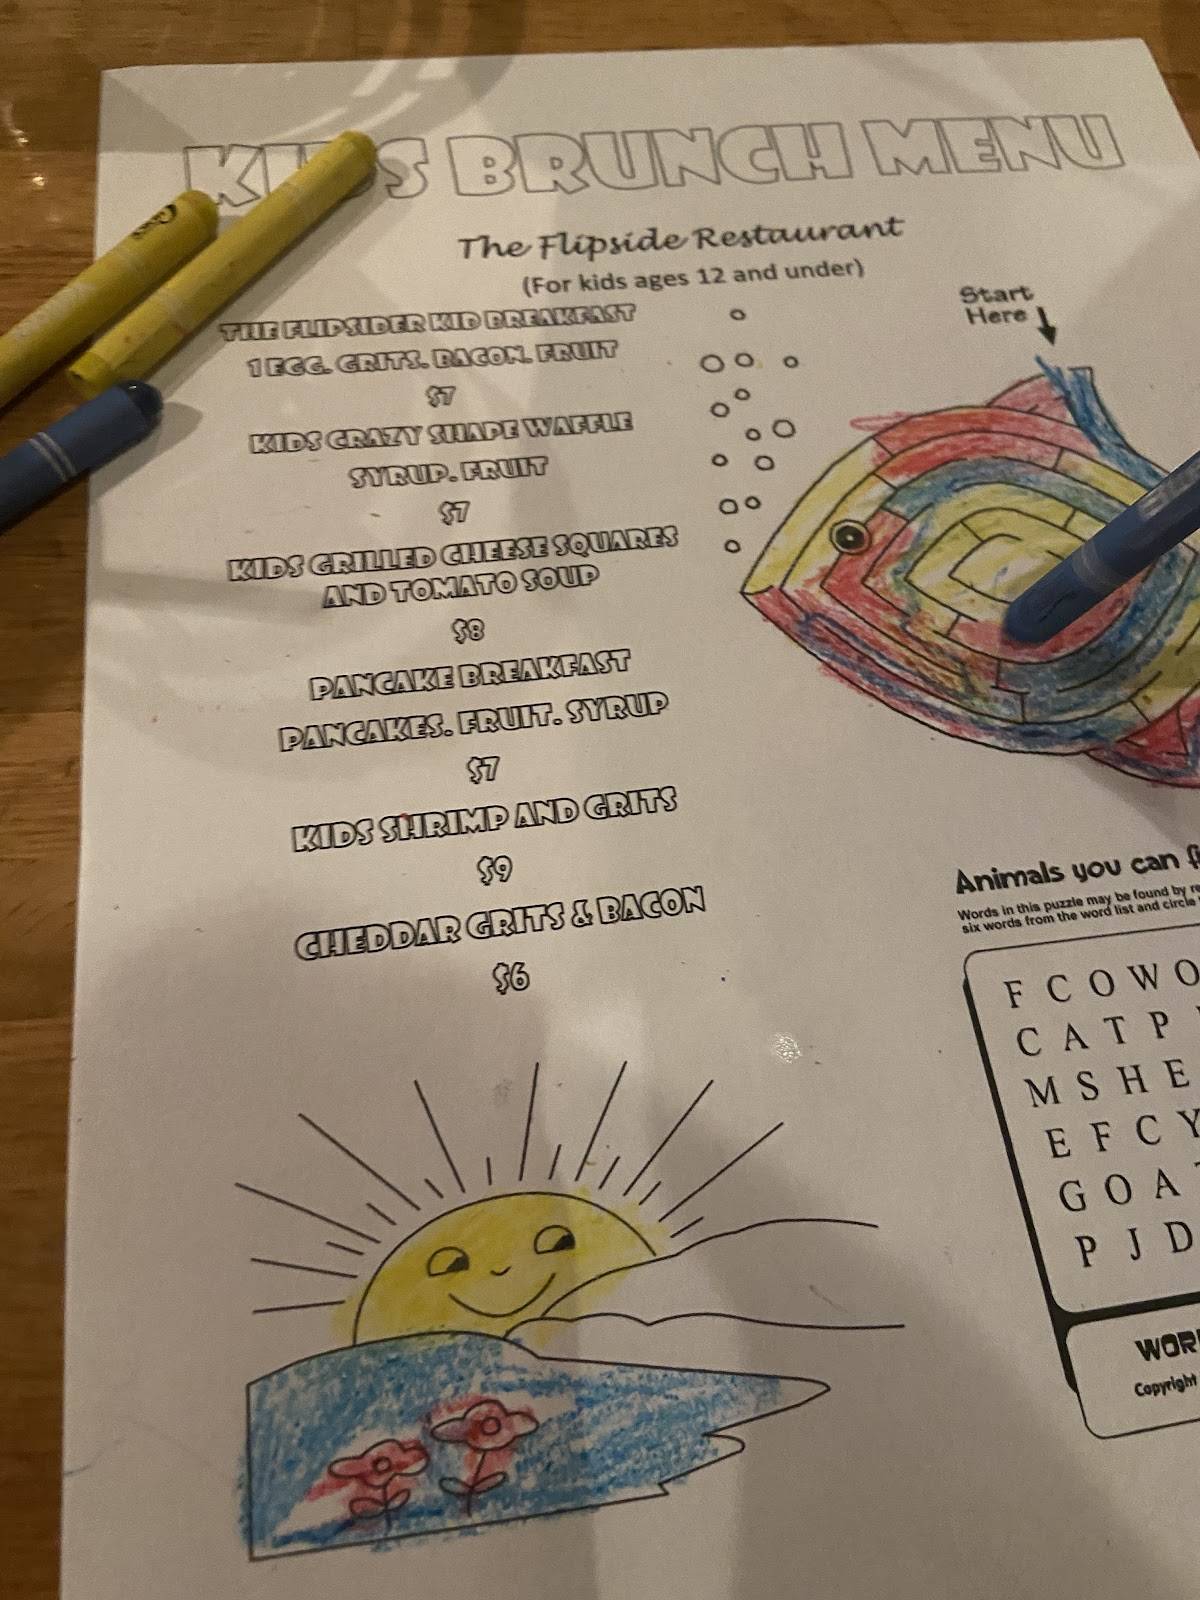 KIDS BRUNCH MENU
The Flipside Restaurant
(For kids ages 12 and under)
THE FLIPSIDER KID BREAKFAST
1 EGG. GRITS. BACON. FRUIT
$7
KIDS CRAZY SHAPE WAFFLE
SYRUP. FRUIT
$7
KIDS GRILLED CHEESE SQUARES
AND TOMATO SOUP
$8
PANCAKE BREAKFAST
PANCAKES. FRUIT. SYRUP
$7
KIDS SHRIMP AND GRITS
$9
CHEDDAR GRITS & BACON
$6
Start
Here
Animals you can
Words in this puzzle may be found by
six words from the word list and circle
F C O W O
C A T P
M S H E
E F C Y
G O A
P J D
WOR
Copyright